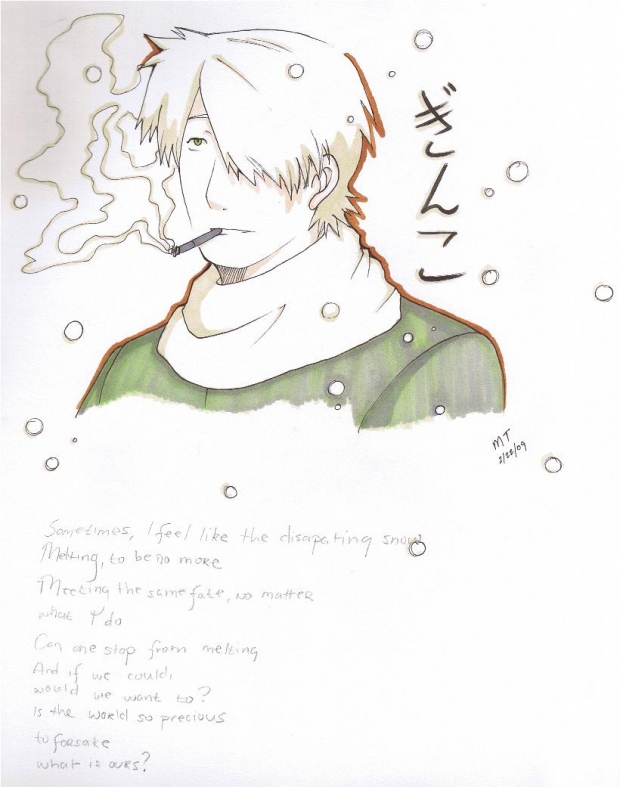 ぎんこ
MT
2/22/09
Sometimes, I feel like the disapating snow
Melting, to be no more
Meeting the same fate, no matter
what I do
Can one stop from melting
And if we could,
would we want to?
Is the world so precious
to forsake
what is ours?